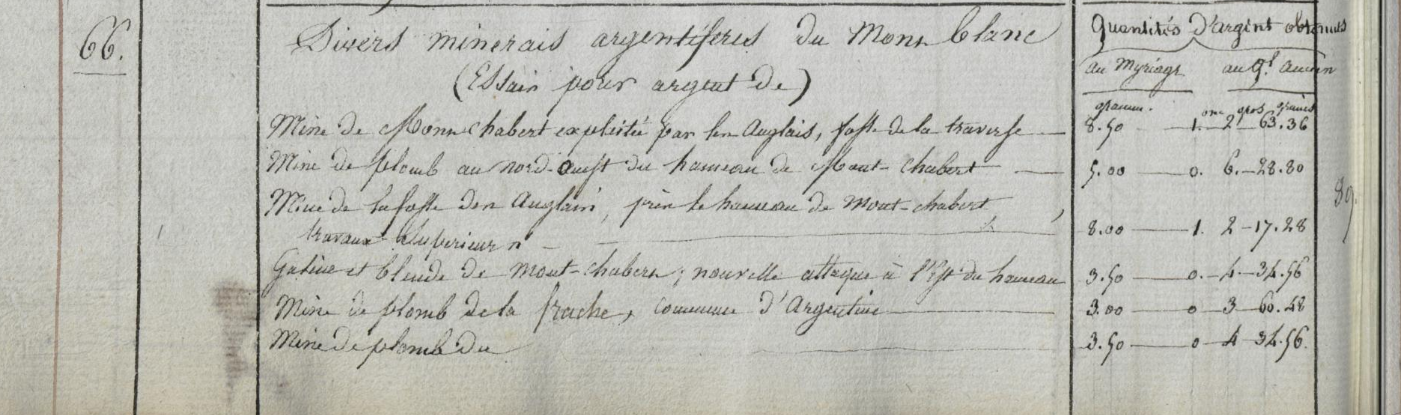 66.
Divers minerais argentiferes du Mont blanc
(Essais pour argent de)
Quantités d'argent obtenues
au Myriagr au ql ancien
grammes. onc gros grains
Mine de Mont chabert exploité par les Anglais, fosse de la traverse — 8.50 — 1. 2 — 63.36
Mine de plomb au nord-ouest du hameau de Mont-chabert — 5.00 — 0. 6. — 28.80
Mine de la fosse des Anglais, près le hameau de Mont-chabert,
travaux supérieurs — 8.00 — 1. 2 — 17.28
Galène et blende de Mont-chabert; nouvelle attaque à l'Est du hameau 3.50 — 0. 4 — 34.56
Mine de plomb de la frache, commune d'Argentine — 3.00 — 0 — 3 — 60.48
Mine de plomb du — 3.50 — 0 — 4 — 34.56.
39.